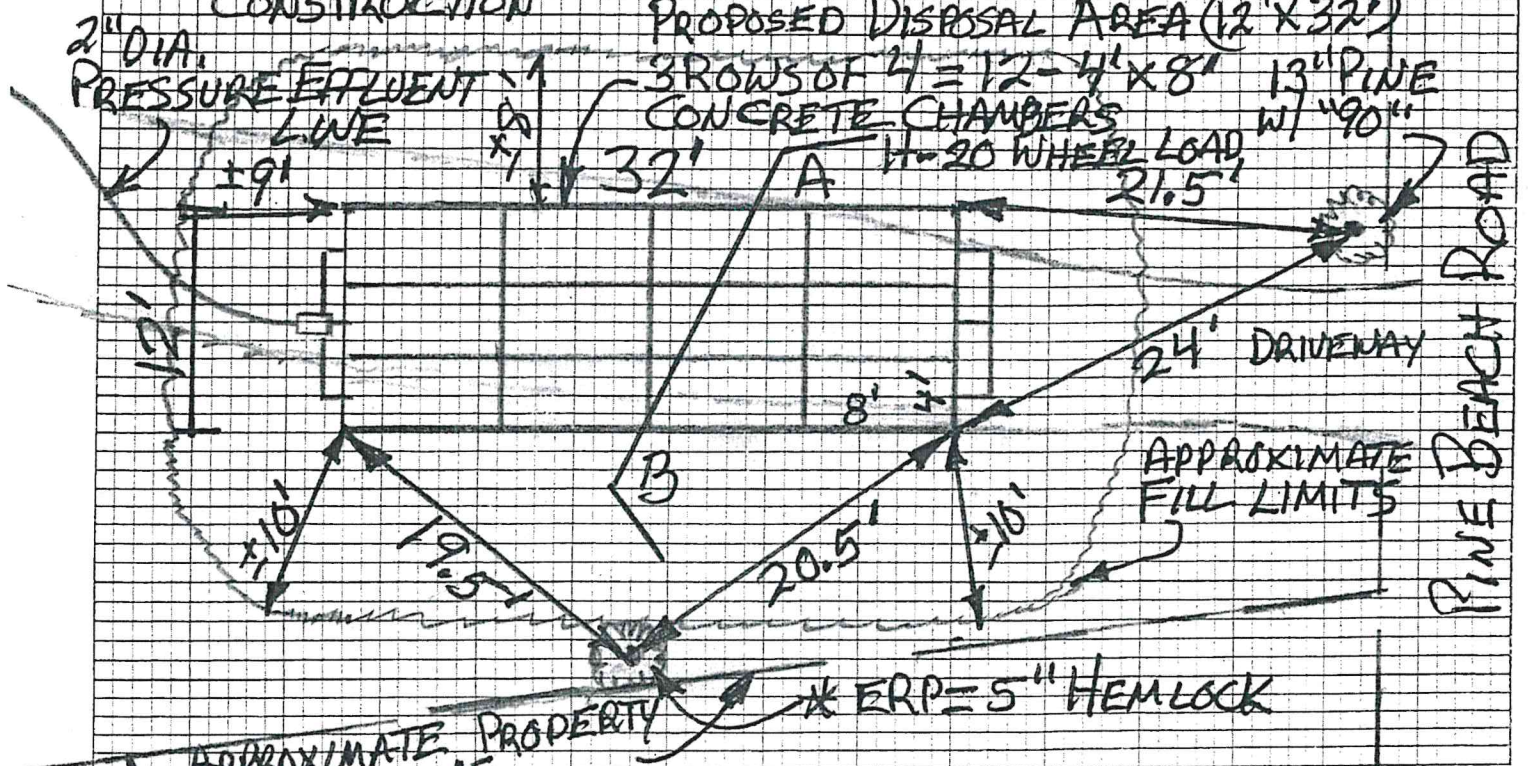 CONSTRUCTION
PROPOSED DISPOSAL AREA (12'X32')
2"DIA.
PRESSURE EFFLUENT
LINE
3 ROWS OF 4 = 12-4'X8'
CONCRETE CHAMBERS
H-20 WHEEL LOAD
13" PINE
W/ "90"
±9'
±5'
32'
A
21.5'
12'
24'
DRIVEWAY
8'
4'
B
APPROXIMATE
FILL LIMITS
PINE BEACH ROAD
±10'
19.5'
20.5'
±10'
* ERP= 5" HEMLOCK
APPROXIMATE PROPERTY